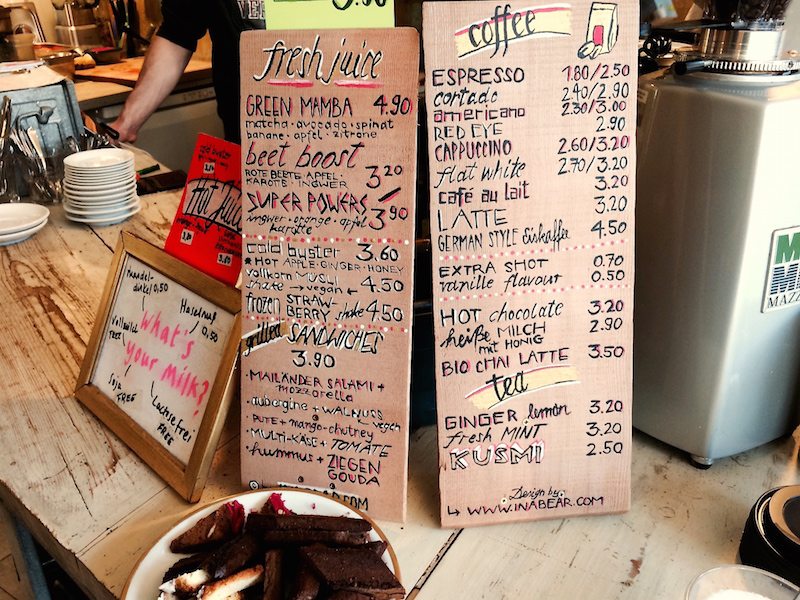 fresh juice
GREEN MAMBA 4.90
matcha • avocado • spinat
banane • apfel • zitrone
beet boost
ROTE BEETE APFEL •
KAROTE • INGWER 3.20
SUPER POWERS
ingwer • orange • apfel 3.90
karotte
cold buster 3.60
HOT APPLE • GINGER • HONEY
vollkorn MÜSLI
shake → vegan ← 4.50
frozen STRAW-
BERRY shake 4.50
grilled SANDWICHES
3.90
• MAILÄNDER SALAMI +
mozzarella
• aubergine + WALNUSS
vegan
• PUTE + mango-chutney
• MULTI-KÄSE + TOMATE
• hummus + ZIEGEN
GOUDA
coffee
ESPRESSO 1.80/2.50
cortado 2.40/2.90
americano 2.30/3.00
RED EYE 2.90
CAPPUCCINO 2.60/3.20
flat white 2.70/3.20
café au lait 3.20
LATTE 3.20
GERMAN STYLE Eiskaffee 4.50
EXTRA SHOT 0.70
vanille flavour 0.50
HOT chocolate 3.20
heiße MILCH 2.90
mit HONIG
BIO CHAI LATTE 3.50
tea
GINGER lemon 3.20
fresh MINT 3.20
KUSMI 2.50
Design by:
↳ WWW.INABEAR.COM
What's
your milk?
Mandel-
dinkel 0,50
Haselnuß
0,50
Vollmilch
FREE
Soja
FREE
Lactosefrei
FREE
Hot Juice